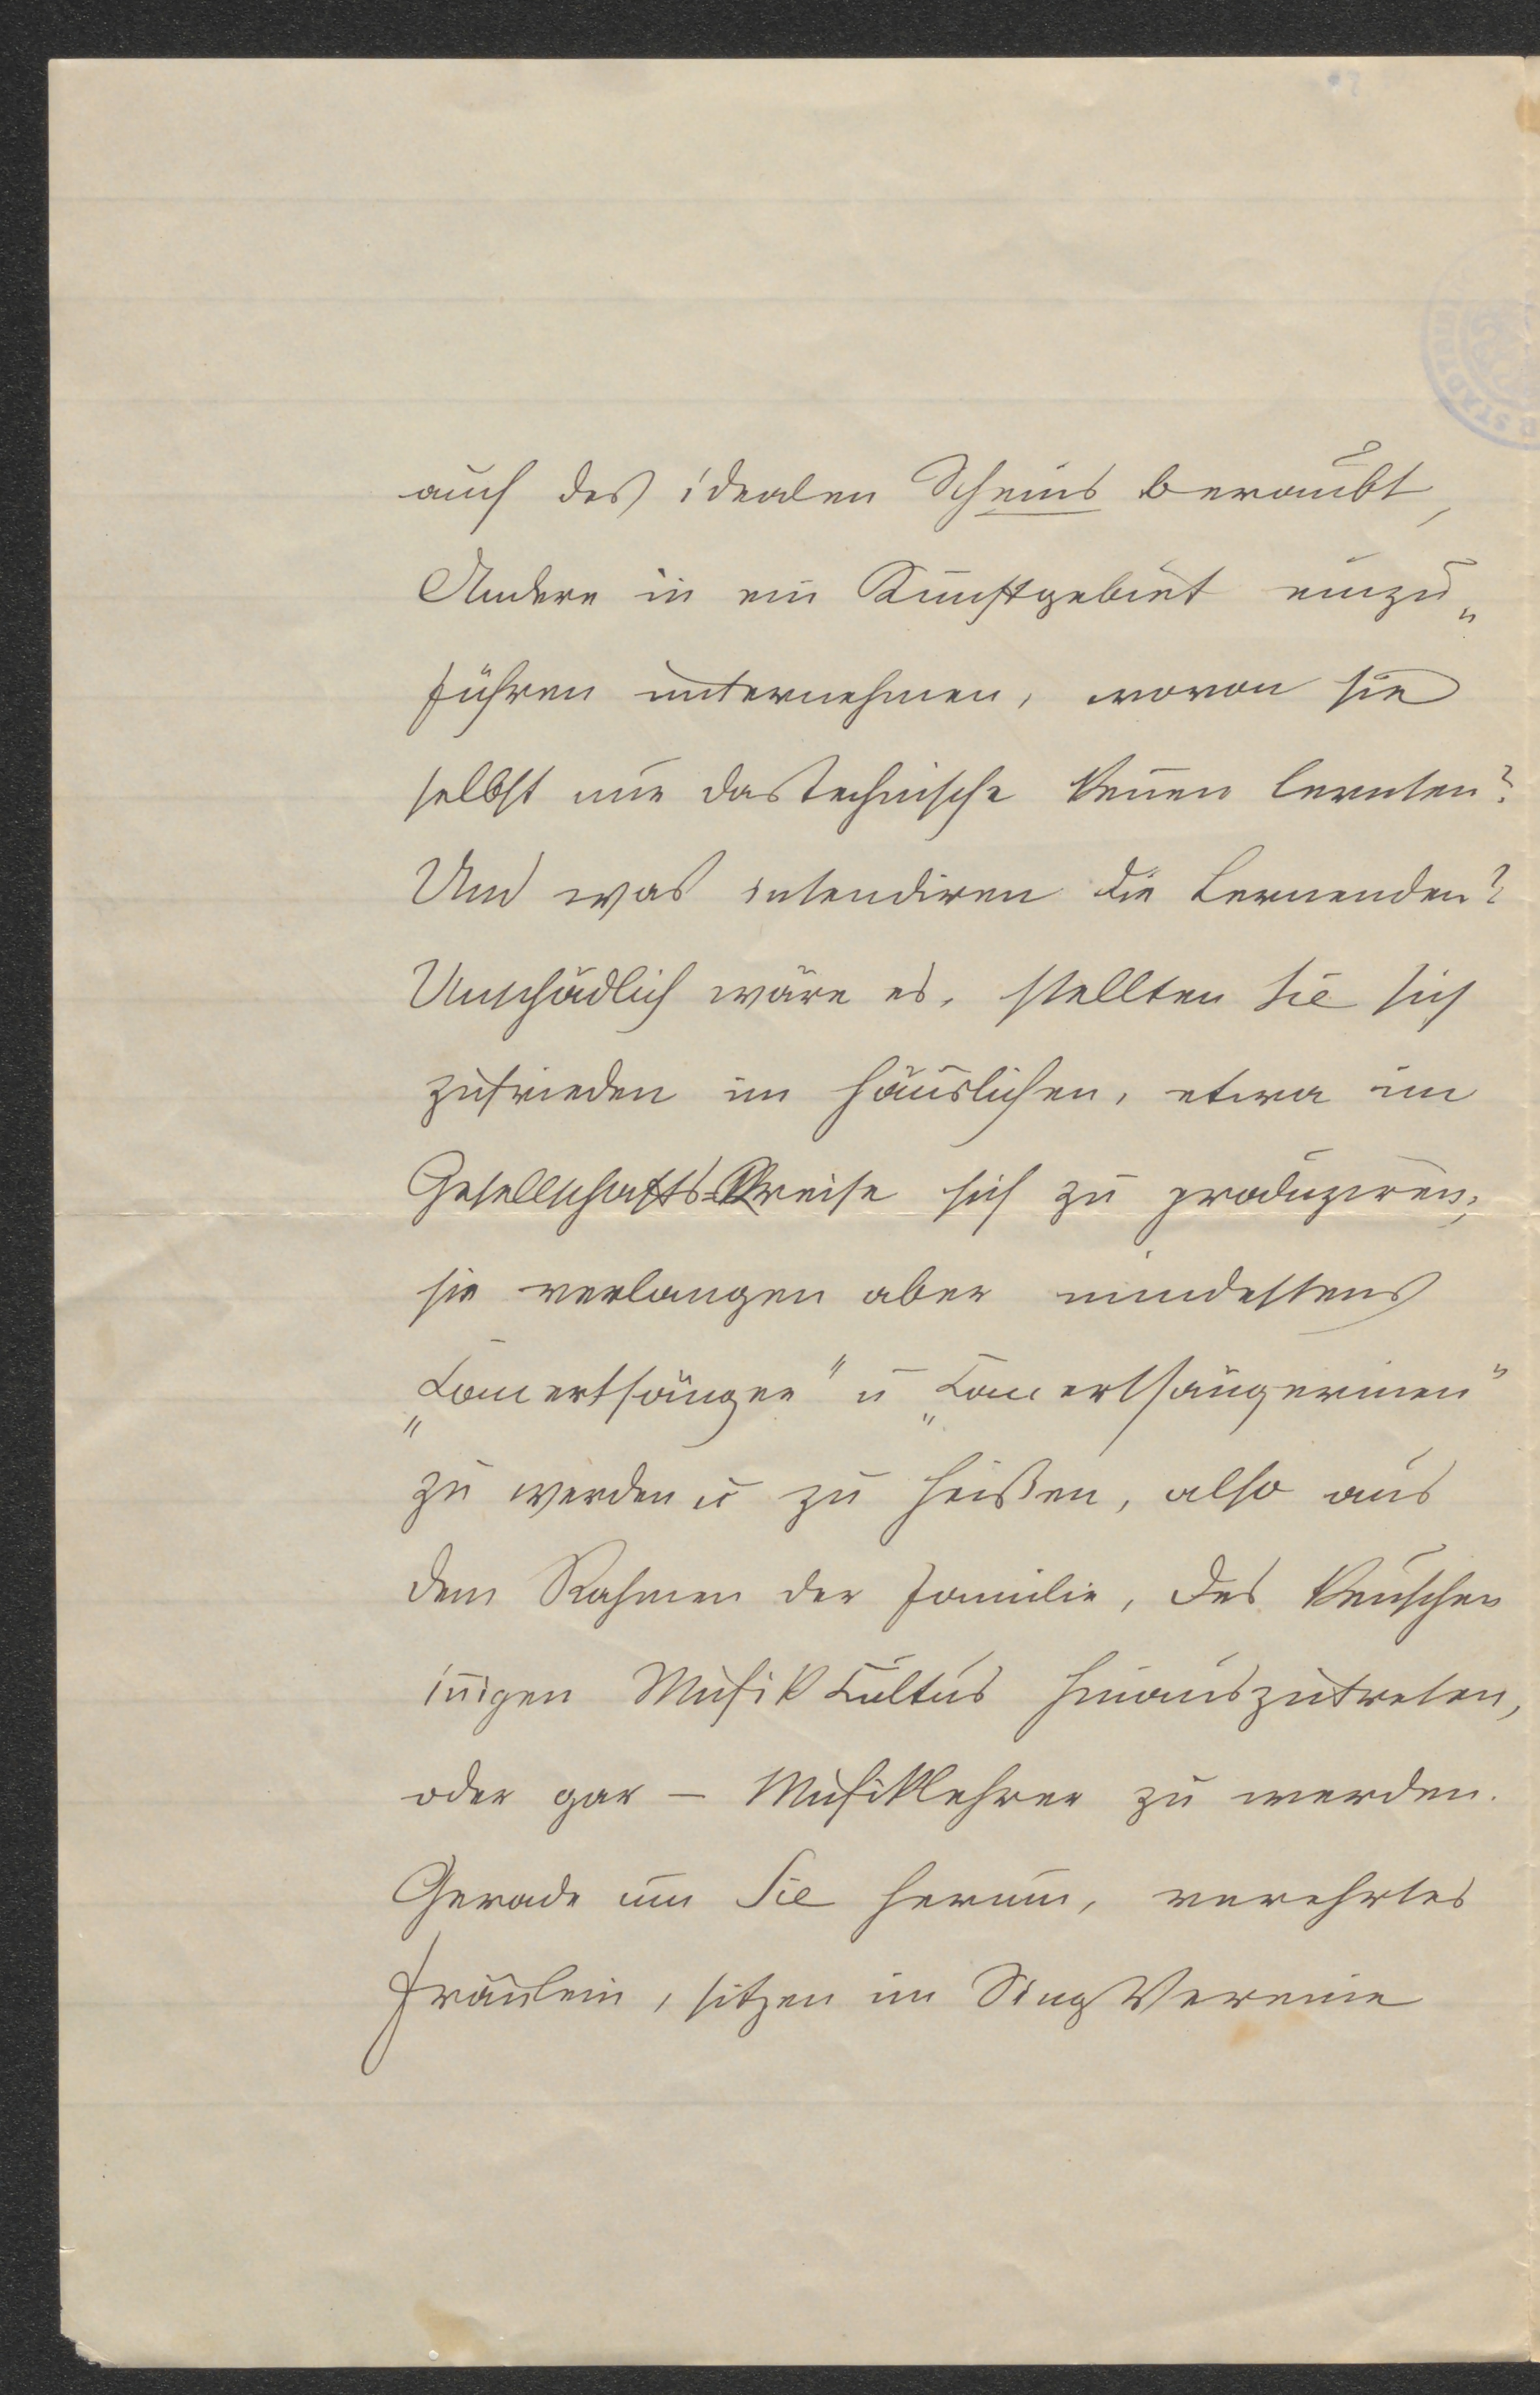 auch des idealen Scheins beraubt,
Andere in ein Kunstgebiet einzu„
führen unternehmen, wovon sie
selbst nur das Technische keñen lernten?
Und was intendiren die Lernenden?
Unschädlich wäre es, stellten sie sich
zufrieden im häuslichen, etwa im
Gesellschafts-Kreise sich zu produziren;
sie verlangen aber mindestens
„Concertsänger" u „Concertsängerinen"
zu werden u zu heißen, also aus
dem Rahmen der Familie, des keuschen
iñigen Musik Cultus hinauszutreten,
oder gar – Musiklehrer zu werden.
Gerade um Sie herum, verehrtes
Fräulein, sitzen im Sing Vereine
STADT